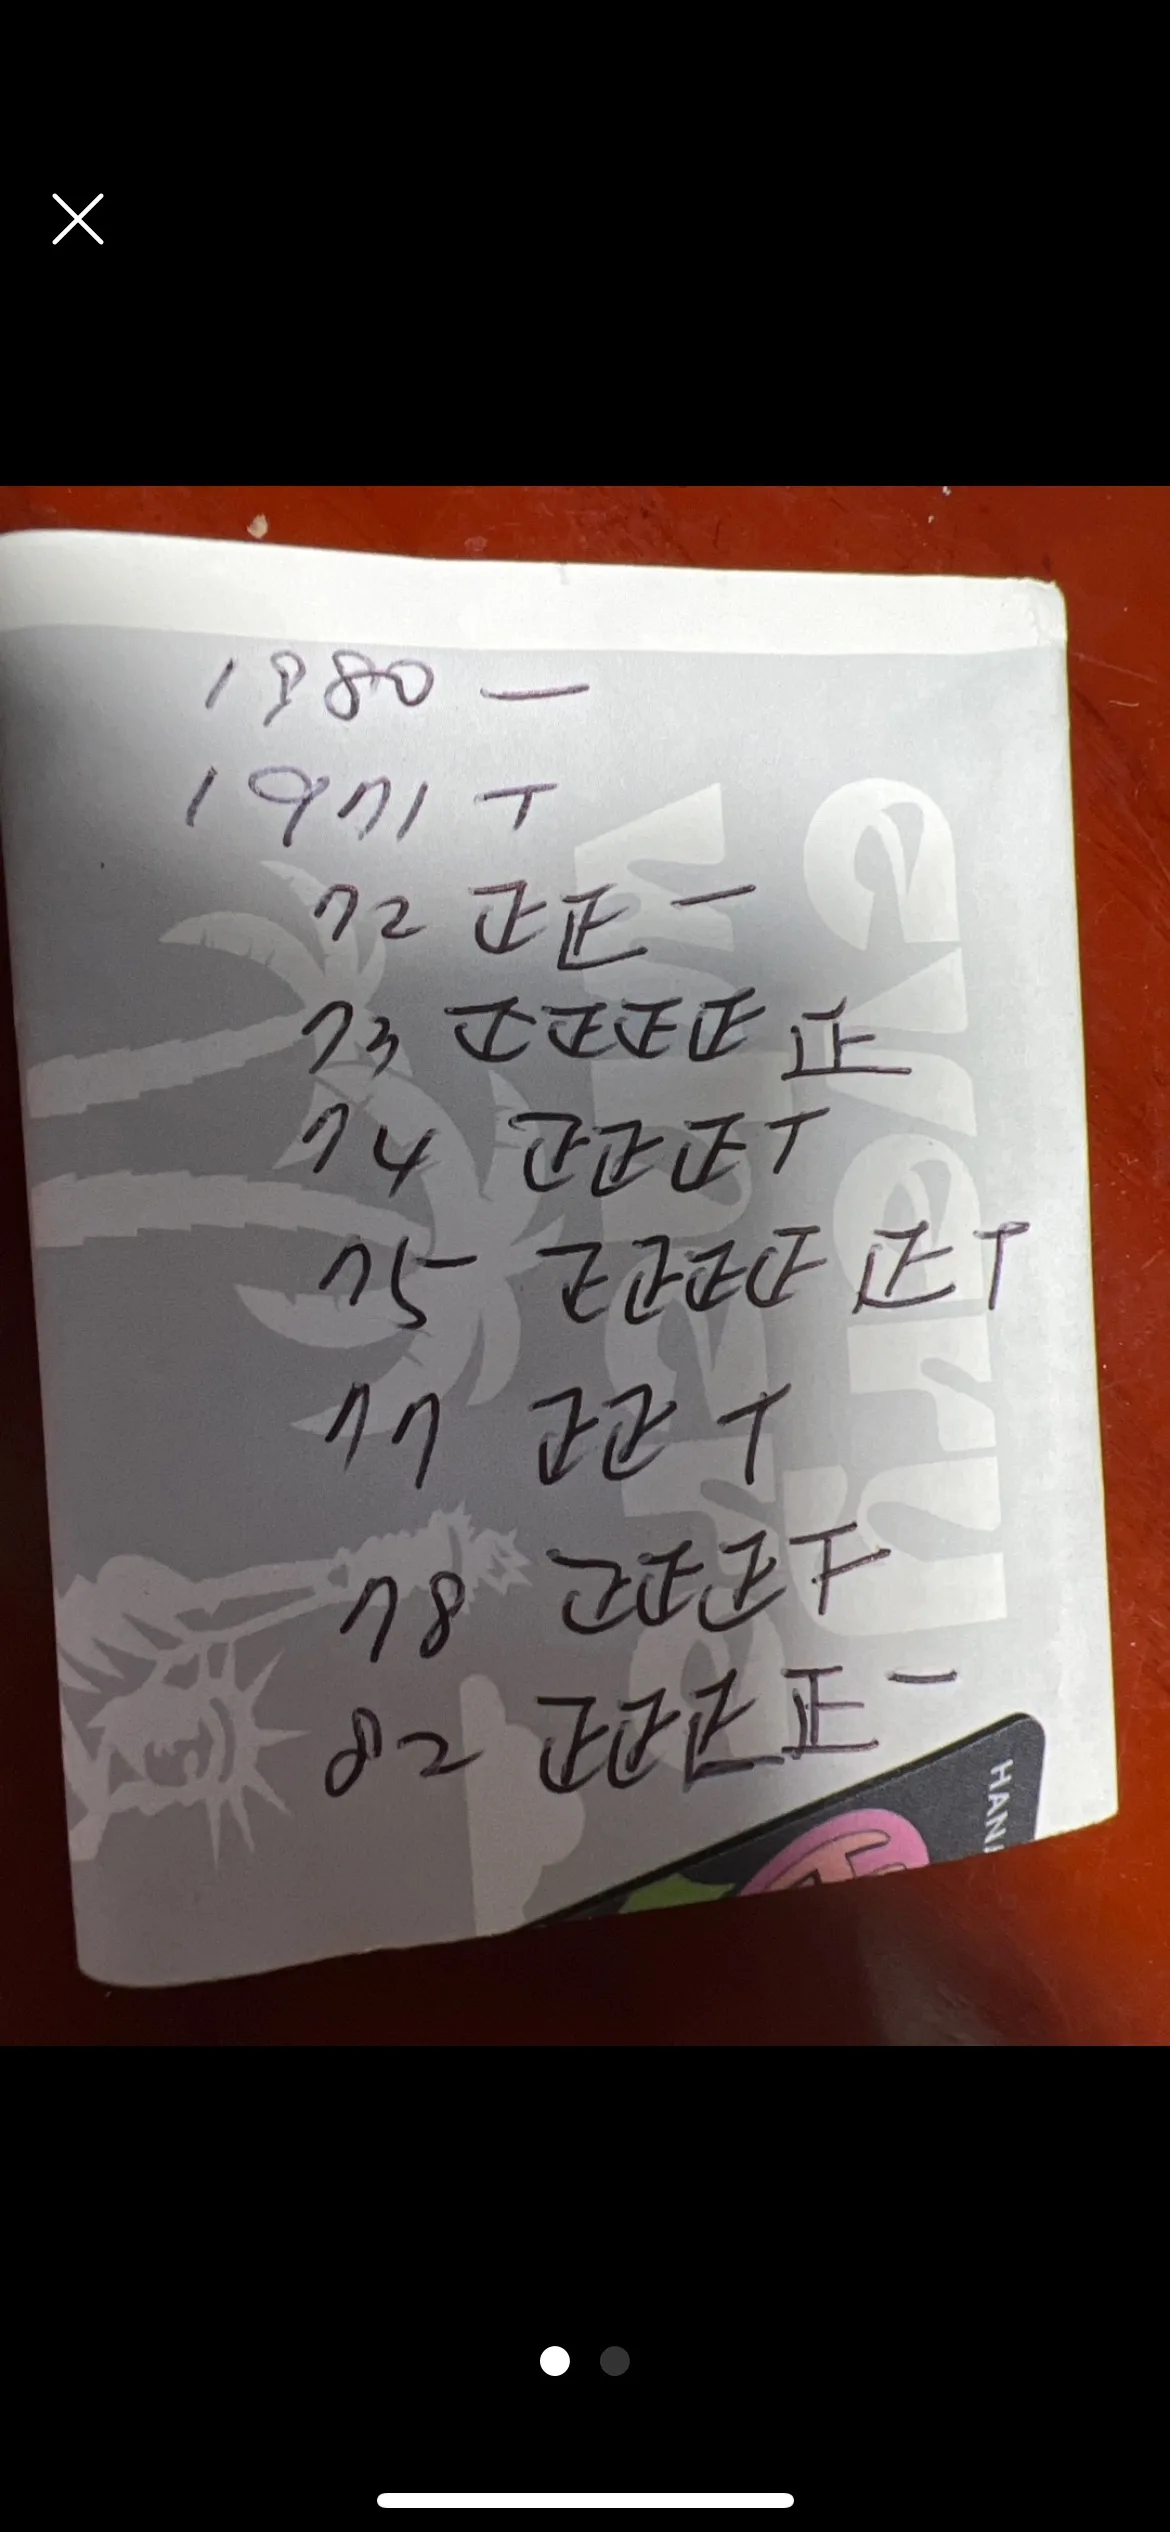 1980 一
1971 T
72 正正一
73 正正正正正
74 正正正T
75 正正正正正T
77 正正T
78 正正正下
82 正正正正一
HAN